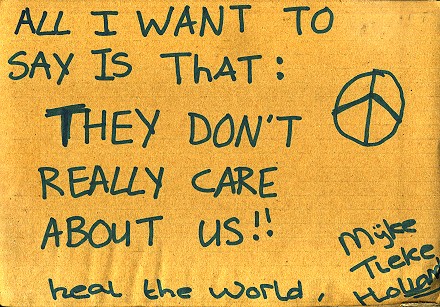 ALL I WANT TO
SAY IS THAT:
THEY DON'T
REALLY CARE
ABOUT US!!
heal the world
Mijke
Tieke
Holland